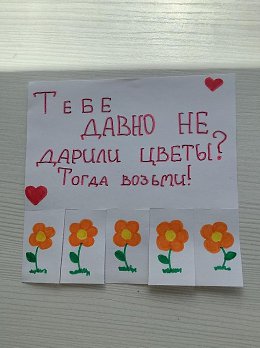 Тебе
давно не
дарили цветы?
Тогда возьми!